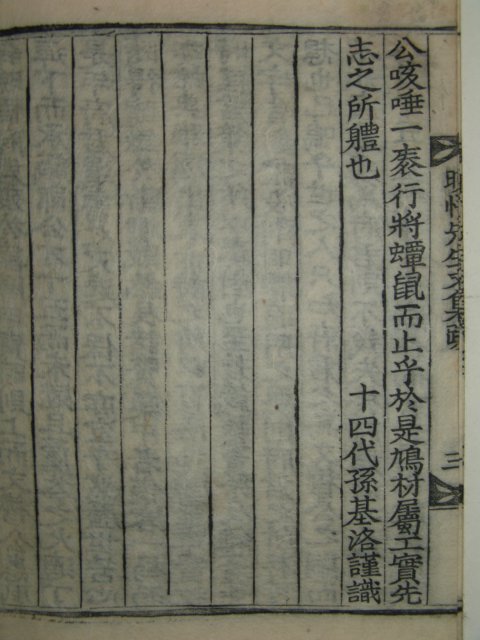 公咳唾一袠行將蟫鼠而止乎於是鳩材屬工實先
志之所軆也
十四代孫基洛謹識
先生文集